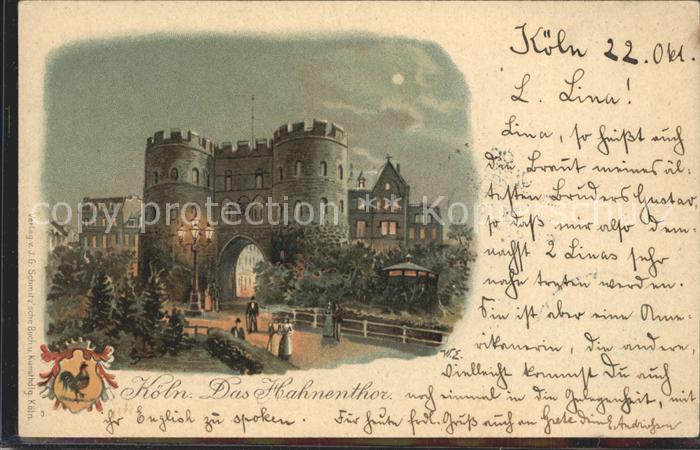 Köln 22. Okt.
L. Lina!
Lina, so heißt auch
die Braut meines äl-
testen Bruders Gustav,
so daß mir also dem-
nächst 2 Linas sehr
nahe treten werden.
Sie ist aber eine Ame-
rikanerin, die andere,
Vielleicht kommst Du auch
noch einmal in die Gelegenheit, mit
ihr Englisch zu spoken. Für heute frdl. Gruß auch an Grete
copy protection * Kopierschutz
W.E.
Köln. Das Hahnenthor.
Verlag v. J. G. Schmitz'sche Buch- u. Kunsthdlg. Köln.